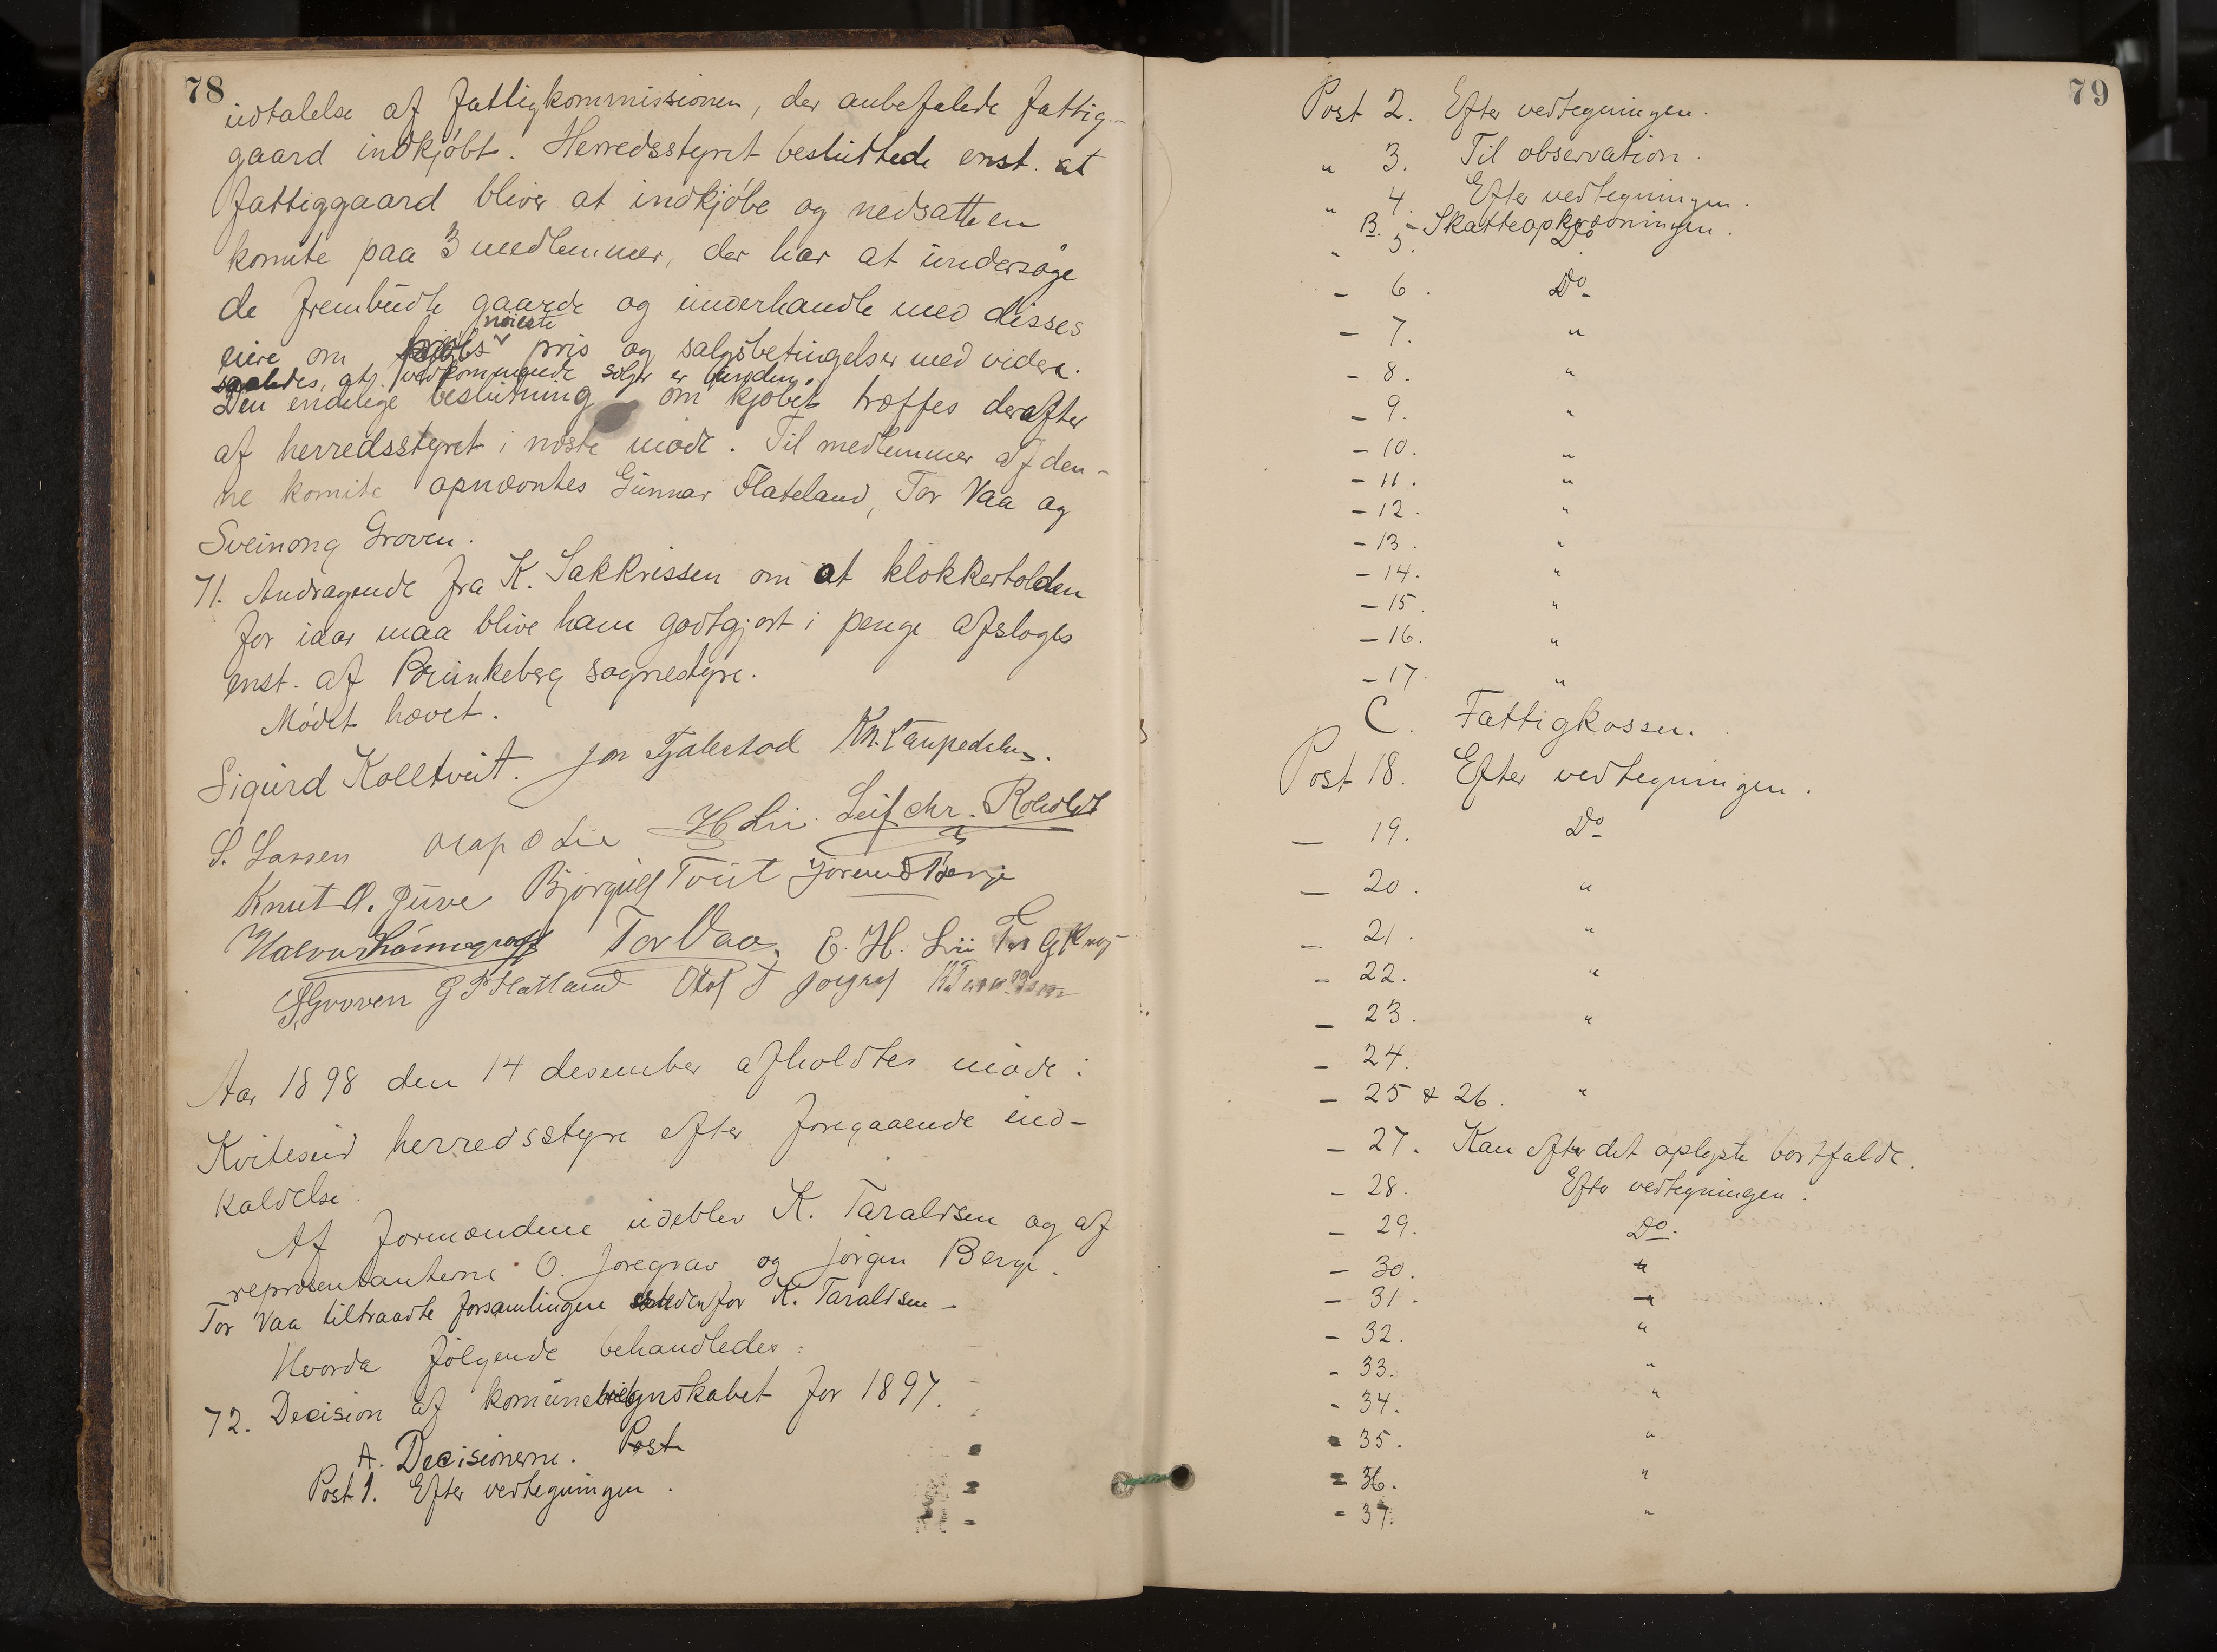 78
udtalelse af fattigkommissionen, der anbefalede fattig-
gaard indkjöbt. Herredsstyret besluttede enst. at
fattiggaard bliver at indkjöbe og nedsatte en
komite paa 3 medlemmer, der har at undersöge
de frembudte gaarde og underhandle med disses
nöieste
eiere om pris og salgsbetingelser med videre.
saaledes, at vedkommende sælger er bunden.
Den endelige beslutning om kjöbet træffes derefter
af herredsstyret i næste möde. Til medlemmer af den-
ne komite opnævntes Gunnar Flateland, Tor Vaa og
Sveinong Groven.
71. Andragende fra K. Sakkrissen om at klokkertolden
for iaar maa blive ham godtgjort i penge afsloges
enst. af Brunkeberg sognestyre.
Mödet hævet.
Sigurd Kolltveit. Jon Tjalestad Kn.
S. Lassen O Lie H Lii. Leif Chr. Roholdt
Knut O. Juve Bjørgulf Tveit Jörund Berge
Halvor Tor Vaa. E. H. Lii
S Groven G P Flatland Olaf J
Aar 1898 den 14 desember afholdtes möde i
Kviteseid herredsstyre efter foregaaende ind-
kaldelse
Af formændene udeblev K. Taraldsen og af
repræsentanterne O. Joregrav og Jörgen Berge.
Tor Vaa tiltraadte forsamlingen istedenfor K. Taraldsen -
Hvorda fölgende behandledes:
72. Decision af komuneregnskabet for 1897.
A. Decisionerne. Post
Post 1. Efter vedtegningen.
79
Post 2. Efter vedtegningen.
" 3. Til observation.
" 4. Efter vedtegningen.
B. - Skatteopkrævningen.
" 5. Do
- 6. Do
- 7. "
- 8. "
- 9. "
- 10. "
- 11. "
- 12. "
- 13. "
- 14. "
- 15. "
- 16. "
- 17. "
C. Fattigkassen.
Post 18. Efter vedtegningen.
- 19. Do
- 20. "
- 21. "
- 22. "
- 23. "
- 24.
- 25 & 26. "
- 27. Kan efter det oplyste bortfalde.
- 28. Efter vedtegningen.
- 29. Do.
- 30. "
- 31. "
- 32. "
- 33. "
- 34. "
- 35. "
- 36. "
- 37. "